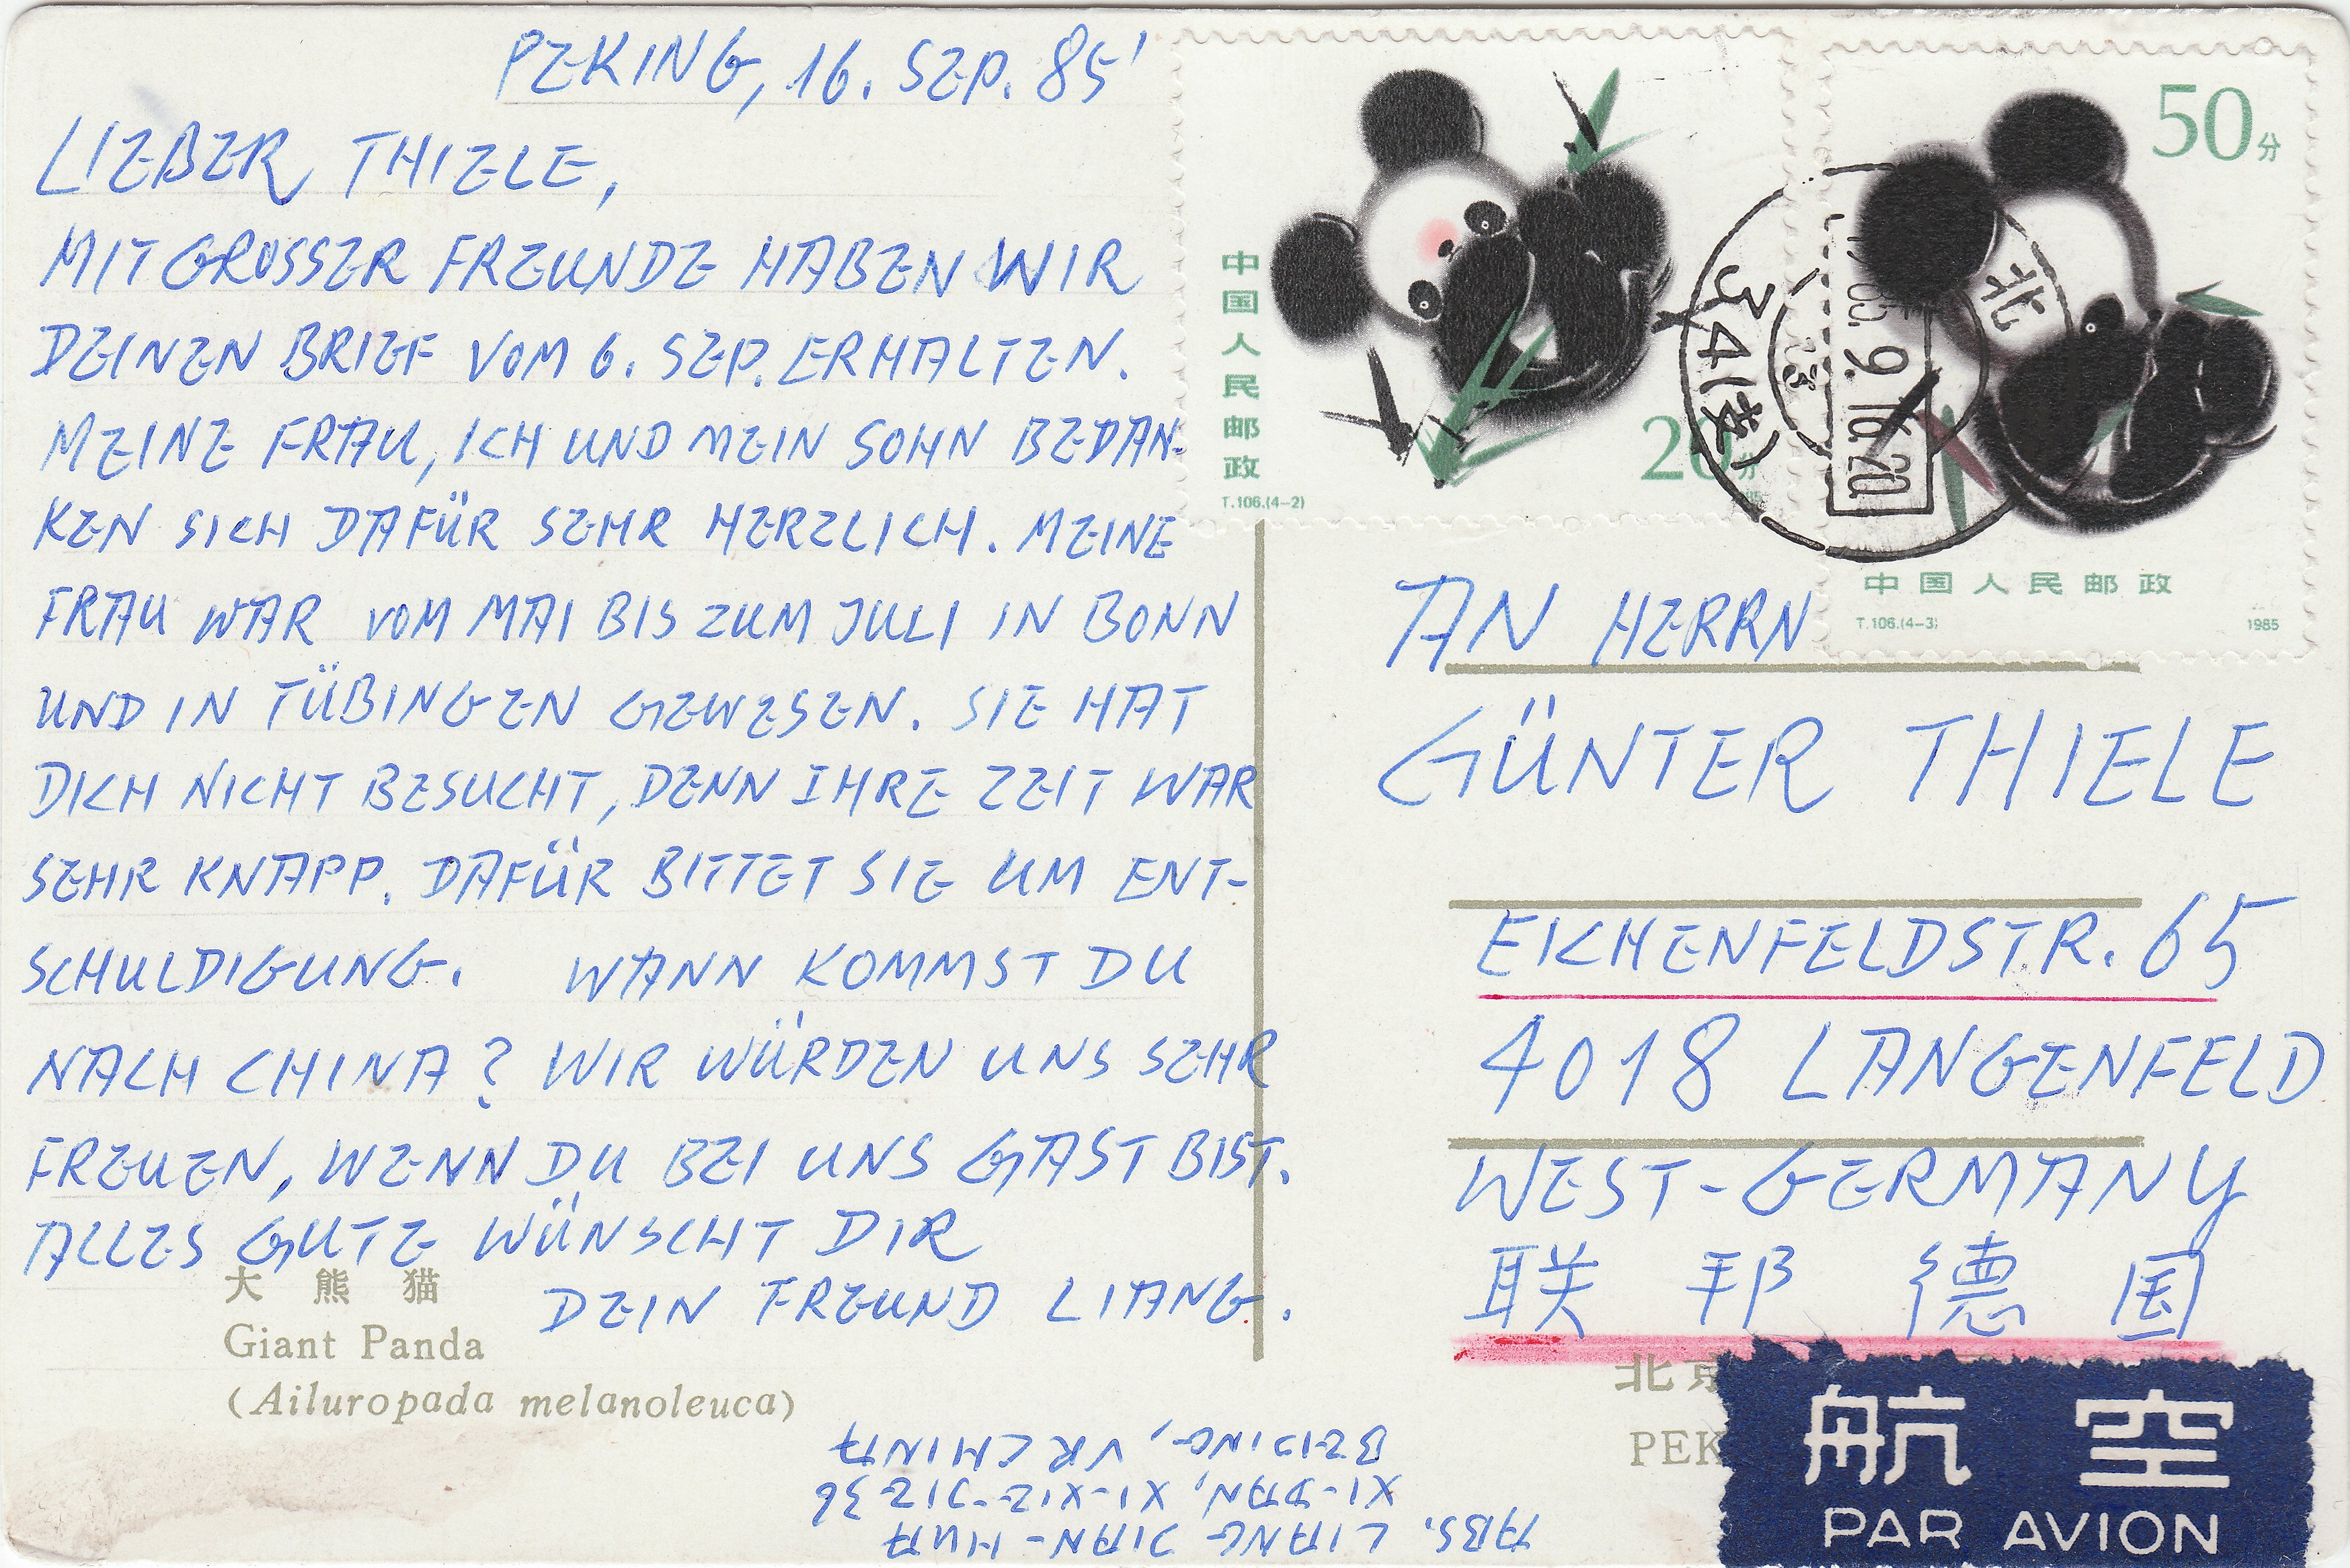 PEKING, 16. SEP. 85'
LIEBER THIELE,
MIT GROSSER FREUNDE HABEN WIR
DEINEN BRIEF VOM 6. SEP. ERHALTEN.
MEINE FRAU, ICH UND MEIN SOHN BEDAN-
KEN SICH DAFÜR SEHR HERZLICH. MEINE
FRAU WAR VOM MAI BIS ZUM JULI IN BONN
UND IN TÜBINGEN GEWESEN. SIE HAT
DICH NICHT BESUCHT, DENN IHRE ZEIT WAR
SEHR KNAPP. DAFÜR BITTET SIE UM ENT-
SCHULDIGUNG. WANN KOMMST DU
NACH CHINA? WIR WÜRDEN UNS SEHR
FREUEN, WENN DU BEI UNS GAST BIST.
ALLES GUTE WÜNSCHT DIR
DEIN FREUND LIANG.
大熊猫
Giant Panda
(Ailuropada melanoleuca)
ABS. LIANG JIAN-HUA
XI-DAN, XI-XIE-JIE 36
BEIJING, VR CHINA
中国人民邮政
T.106.(4-2)
20分
50分
中国人民邮政
T.106.(4-3)
1985
北
9.16.20
341(支)
AN HERRN
GÜNTER THIELE
EICHENFELDSTR. 65
4018 LANGENFELD
WEST-GERMANY
联邦德国
北京
PEK
航空
PAR AVION